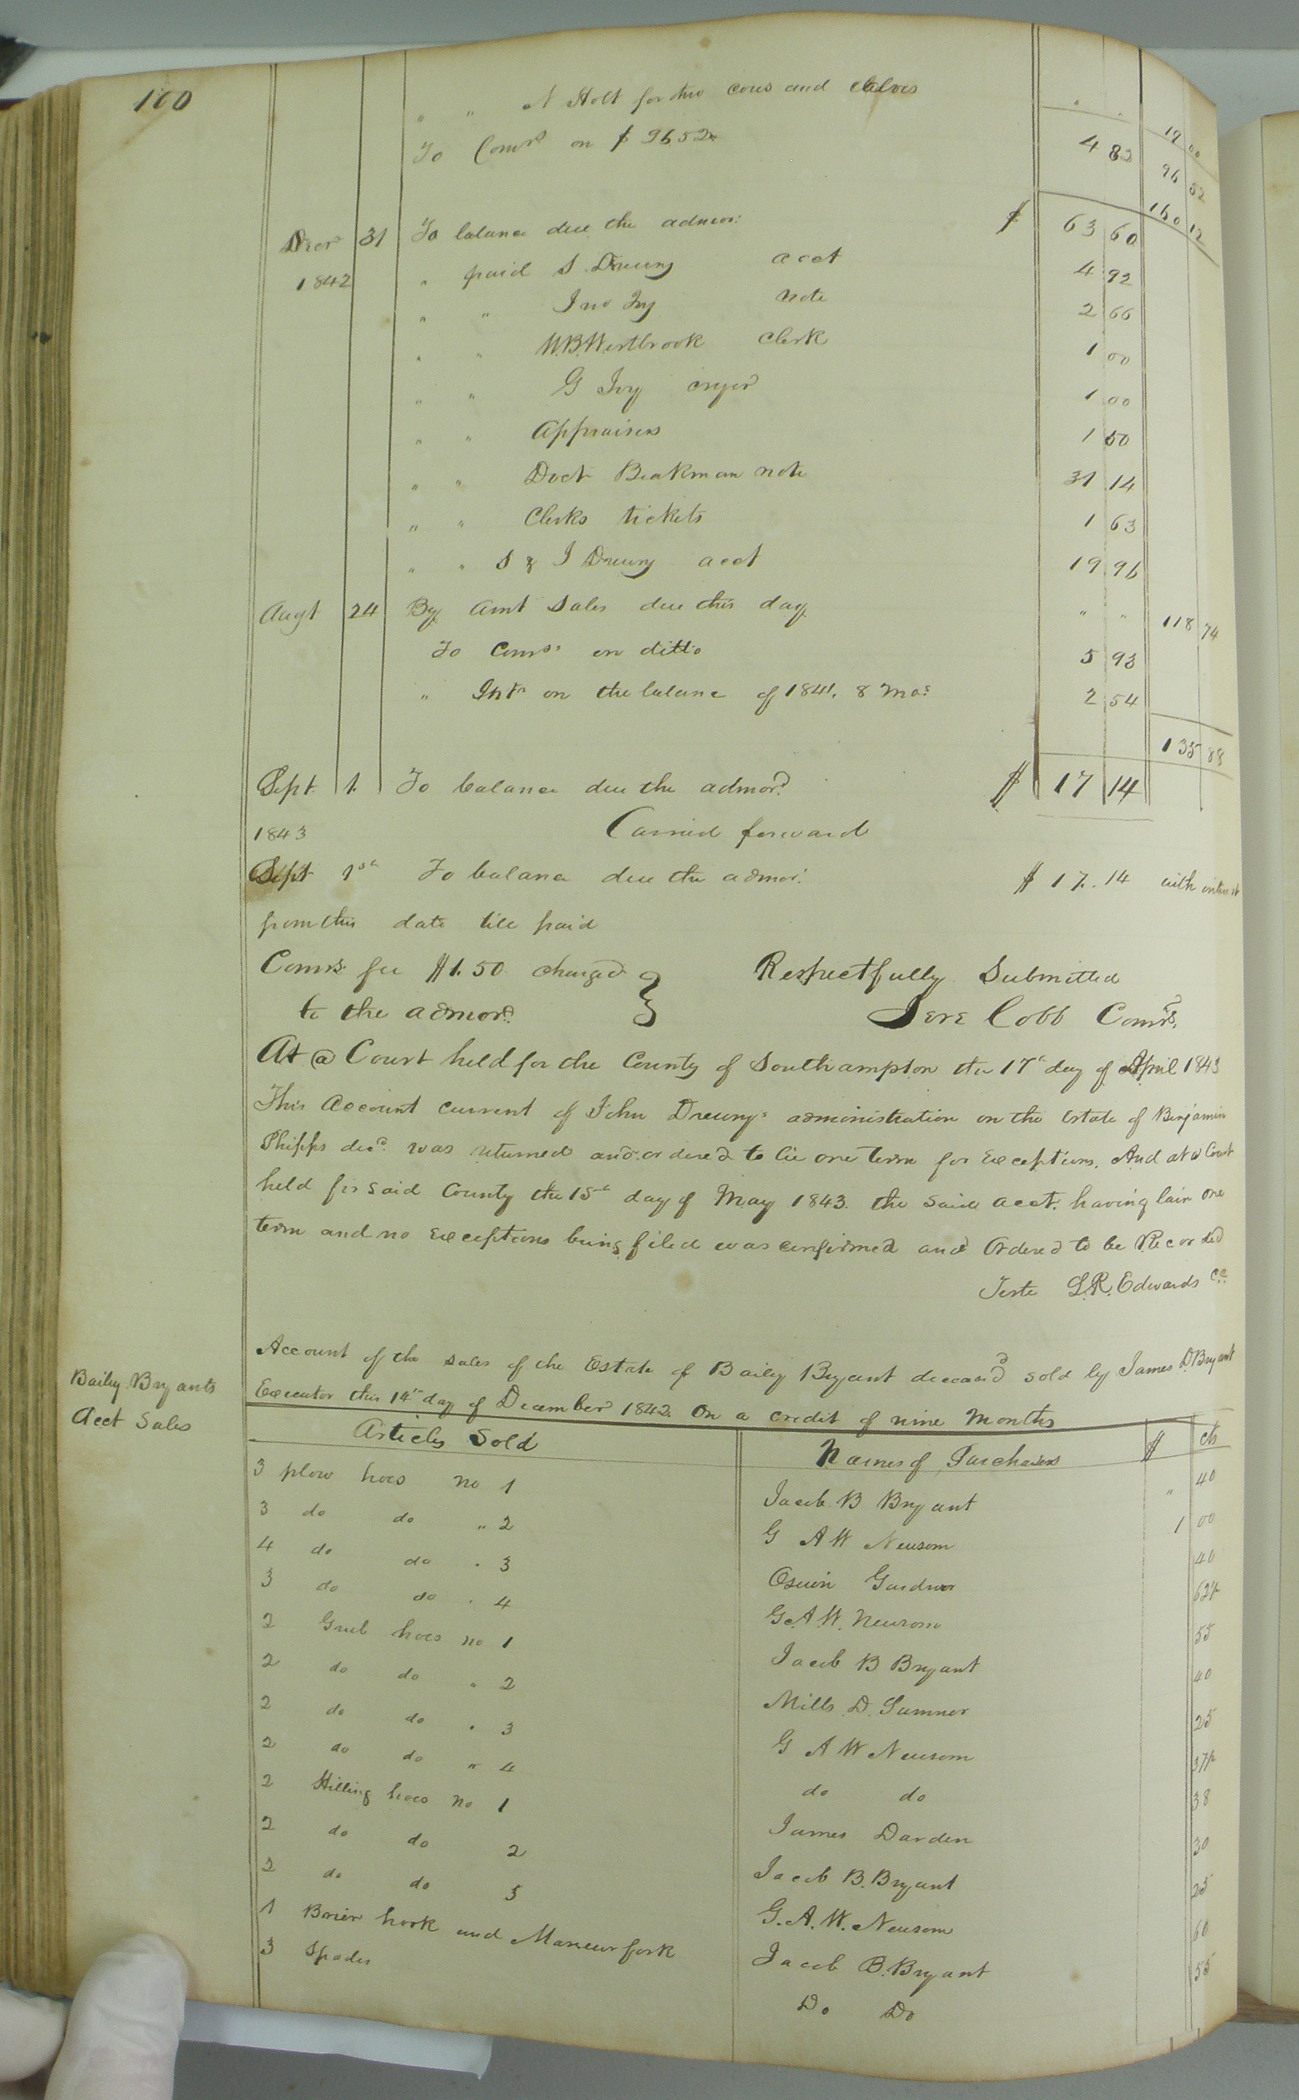 100
" " N Holt for two cows and Calves 19 00
To Comrs on $ 96 52 4 82 96 52
160 12
Decr 31 To balance due the admor: $ 63 60
1842 " paid S. Drewry acct 4 92
" " Jno Ivy note 2 66
" " W.B. Westbrook clerk 1 00
" " G Ivy cryer 1 00
" " Appraisers 1 50
" " Doct Beakman note 31 14
" " Clerks tickets 1 63
" " S & J Drewry acct 19 96
Augt 24 By Amt Sales due this day " " 118 74
To Coms on ditto 5 93
" Int on the balance of 1841. 8 Mos 2 54
135 88
Sept 1. To balance due the admor. $ 17 14
1843 Carried forward
Sept 1st To balance due the admor. $ 17.14 with interest
from this date till paid
Comrs fee $1.50 charged } Respectfully Submitted
to the admor. Jere Cobb Comr.
At a Court held for the County of Southampton the 17th day of April 1843
This Account current of John Drewrys administration on the estate of Benjamin
Phipps decd. was returned and ordered to lie one term for exceptions. And at a Court
held for said County the 15th day of May 1843. the said acct. having lain one
term and no exceptions being filed was confirmed and Ordered to be Recorded
Teste L.R. Edwards CC
Bailey Bryants
Acct Sales
Account of the sales of the Estate of Bailey Bryant deceasd sold by James D. Bryant
Executor this 14th day of December 1842 On a credit of nine Months
Articles Sold Names of Purchasers $ cts
3 plow hoes no 1 Jacob B Bryant " 40
3 do do " 2 G A W Newsom 1 00
4 do do " 3 Gardner 40
3 do do " 4 G.A.W. Newsom 62½
2 Grub hoes no 1 Jacob B Bryant 55
2 do do " 2 Mills D. Sumner 40
2 do do " 3 G A W Newsom 25
2 do do " 4 do do 37½
2 Hilling hoes no 1 James Darden 38
2 do do 2 Jacob B. Bryant 30
2 do do 3 G. A. W. Newsom 25
1 Brier hook and Maneur fork Jacob B. Bryant 60
3 Spades Do Do 55